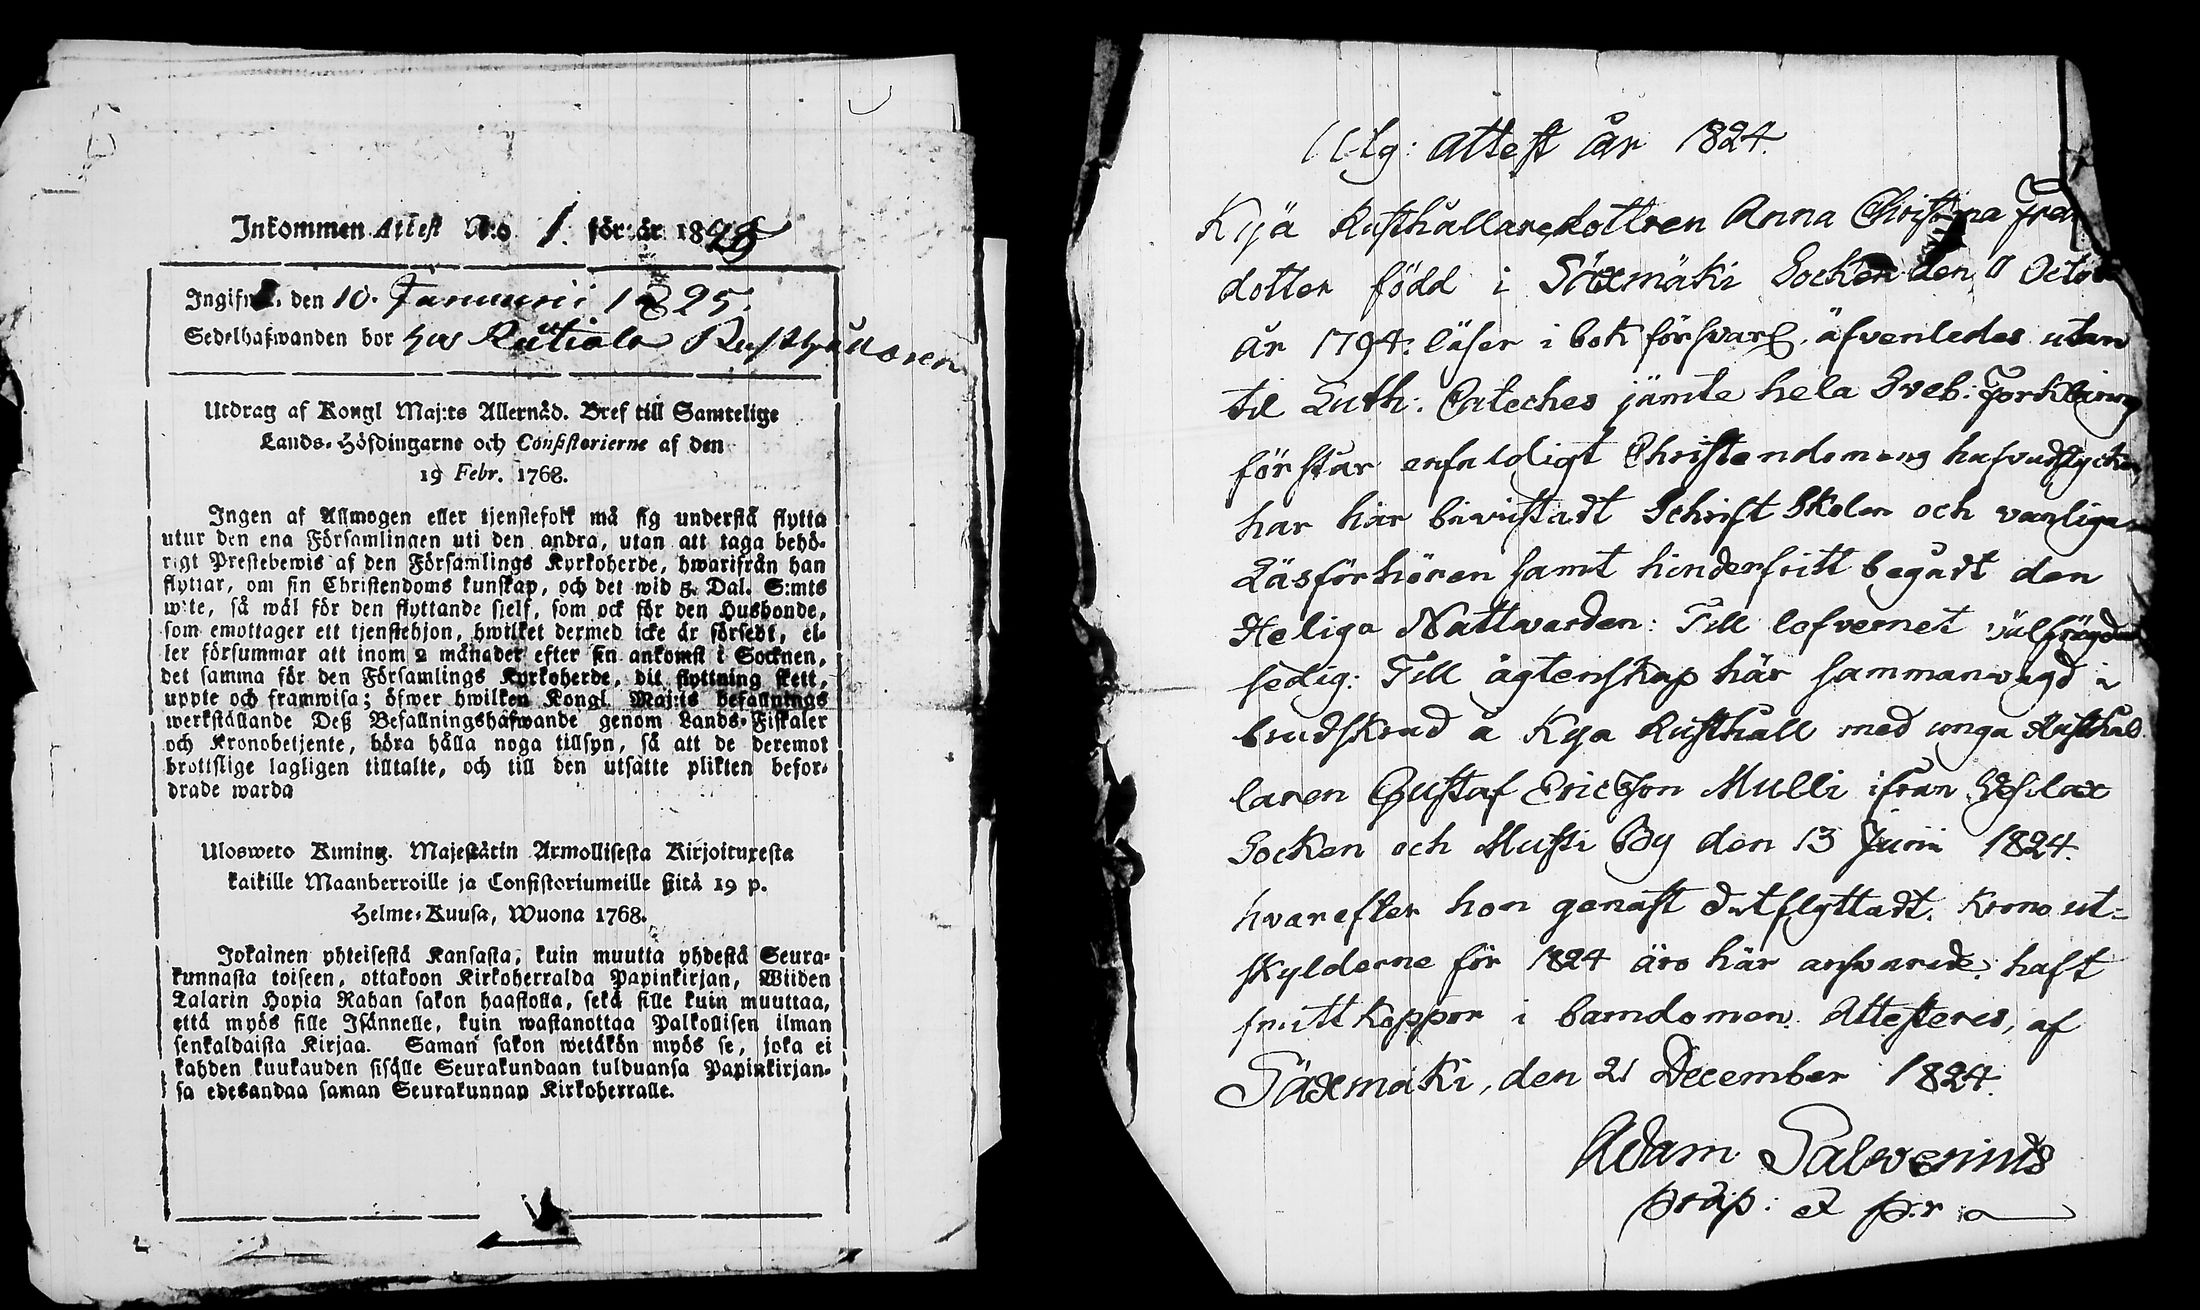 Inkommen Attest N:o 1. för år 1825
Ingifwen den 10. Januarii 1825.
Sedelhafwanden bor hos Rutiala Rusthållaren
Utdrag af Kongl Maj:ts Allernåd. Bref till Samtelige
Lands-Höfdingarne och Consistorierne af den
19 Febr. 1768.
Ingen af Allmogen eller tjenstefolk må sig understå flytta
utur den ena Församlingen uti den andra, utan att taga behö-
rigt Prestebewis af den Församlings Kyrkoherde, hwarifrån han
flyttar, om sin Christendoms kunskap, och det wid 5. Dal. S:mts
wite, så wäl för den flyttande sjelf, som ock för den Husbonde,
som emottager ett tjenstehjon, hwilket dermed icke är försedt, el-
ler försummar att inom 2 månader efter sin ankomst i Socknen,
det samma för den Församlings Kyrkoherde, dit flyttning skett,
uppte och framwisa; öfwer hwilken Kongl Maj:ts befallnings
werkställande Deß Befallningshafwande genom Lands-Fiskaler
och Kronobetjente, böra hålla noga tillsyn, så att de deremot
brottslige lagligen tilltalte, och till den utsatte plikten befor-
drade warda
Ulosweto Kuning. Majestätin Armollisesta Kirjoituxesta
kaikille Maanherroille ja Consistoriumeille siitä 19 p.
Helme-Kuusa, Wuona 1768.
Jokainen yhteisestä Kansasta, kuin muutta yhdestä Seura-
kunnasta toiseen, ottakoon Kirkoherralda Papinkirjan, Wiiden
Talarin Hopia Rahan sakon haastolla, sekä sille kuin muuttaa,
että myös sille Isännelle, kuin wastanottaa Palkollisen ilman
senkaldaista Kirjaa. Saman sakon wetäkön myös se, joka ei
kahden kuukauden sisälle Seurakundaan tulduansa Papinkirjan-
sa edesandaa saman Seurakunnan Kirkoherralle.
Utg: attest år 1824.
Kyä Rusthållaredottren Anna Christina
dotter född i Säxmäki Socken den
år 1794: läser i bok försvarl. äfvenledes utan
til Luth: Cateches jämte hela Sveb: Forklaring
förstår enfaldigt Christendomens hufvudstycken
har här bivistadt Schrift Skolan och vanliga
Läsförhören samt hinderfritt begådt den
Heliga Nattwarden: Till lefvernet välfrägdad
sedig: Till ägtenskap här sammanvigd i
brudskrud å Kyä Rusthåll med unga Rusthål
laren Gustaf Ericsson Mulli ifrån Vesilax
Socken och Mulli By den 13 Junii 1824.
hvarefter hon genast dit flyttadt. Krono ut-
skylderne för 1824 äro här ansvarade: haft
smittkoppor i barndomen. Attesteres, af
Säxmäki, den 21 December 1824.
Adam Salwenius
præp: & p:r